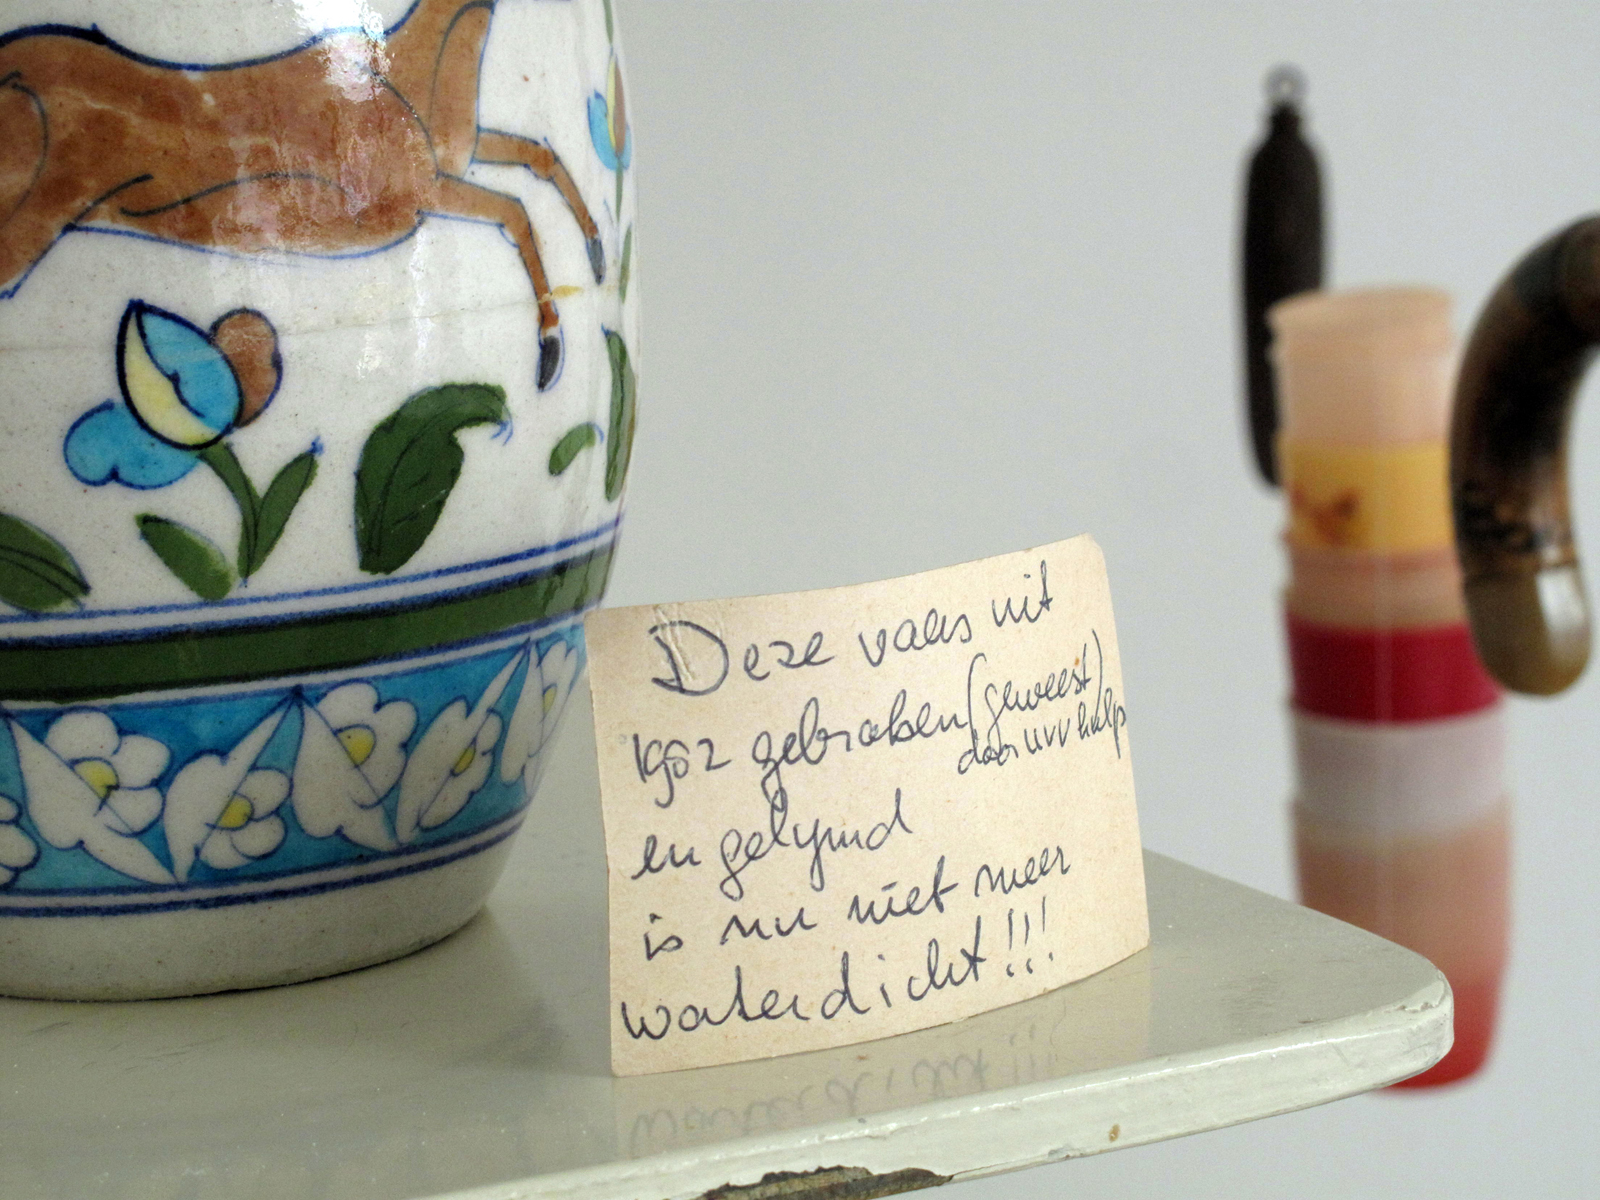 Deze vaas uit
1952 gebroken (geweest)
door
en gelymd
is nu niet meer
waterdicht!!!